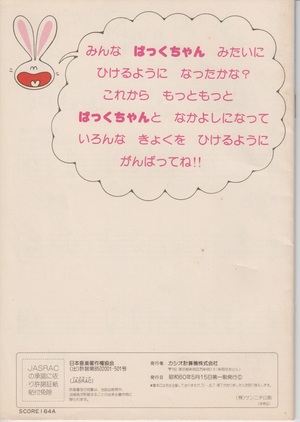 みんな ぱっくちゃん みたいに
ひけるように なったかな?
これから もっともっと
ぱっくちゃんと なかよしになって
いろんな きょくを ひけるように
がんばってね!!
JASRAC
の承諾に依
り許諾証紙
貼付免除
日本音楽著作権協会
(JASRAC)
発行者 カシオ計算機株式会社
発行日 昭和60年5月15日第一版発行
SCORE164A